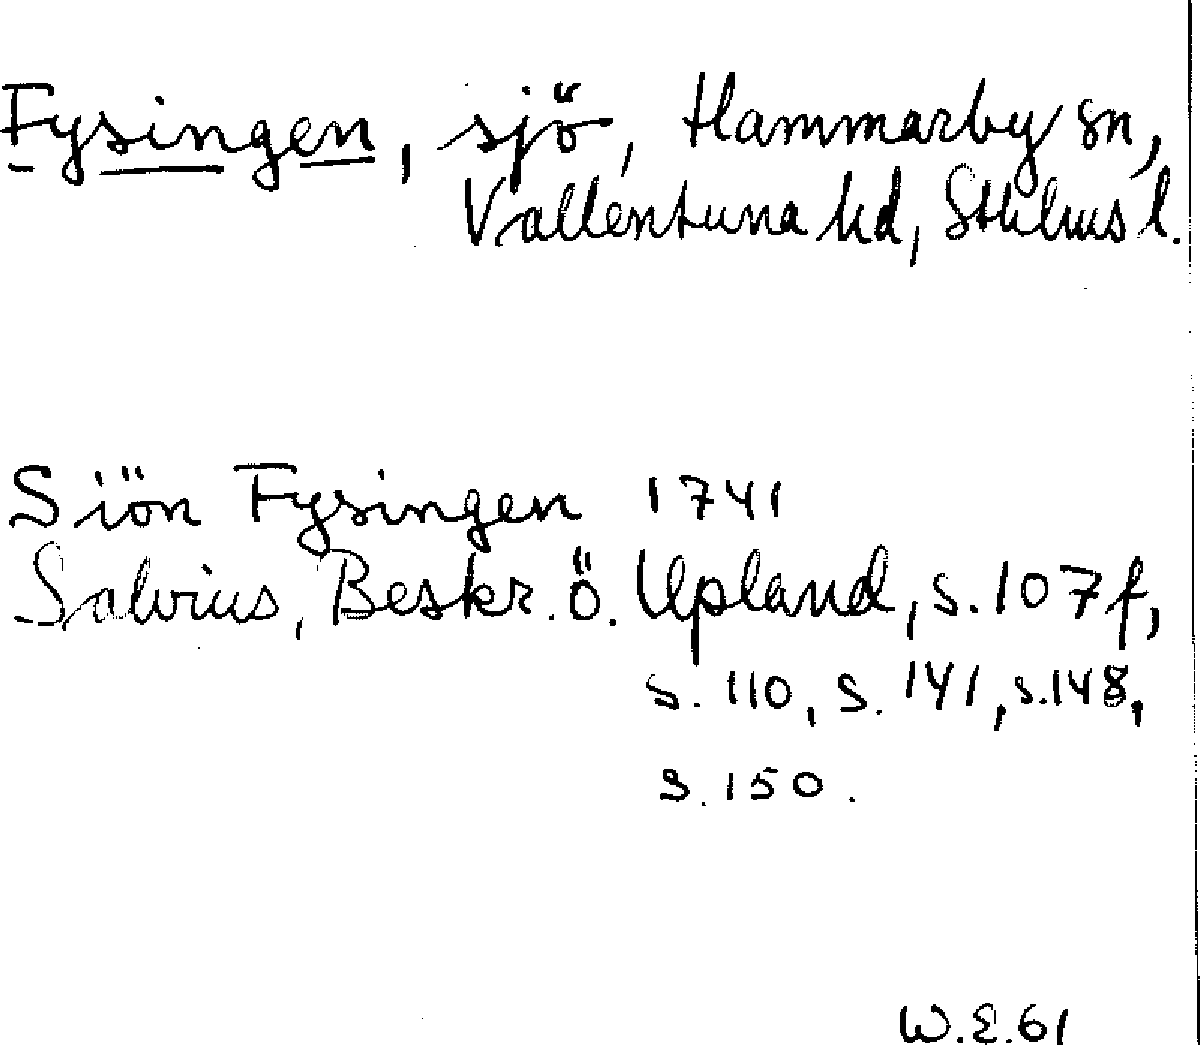 Fysingen, sjö, Hammarby sn,
Vallentuna hd, Sthlms l.
Siön Fysingen 1741
Salvius, Beskr. ö. Upland, s. 107 f,
s. 110, s. 141, s. 148,
s. 150.
W.E. 61